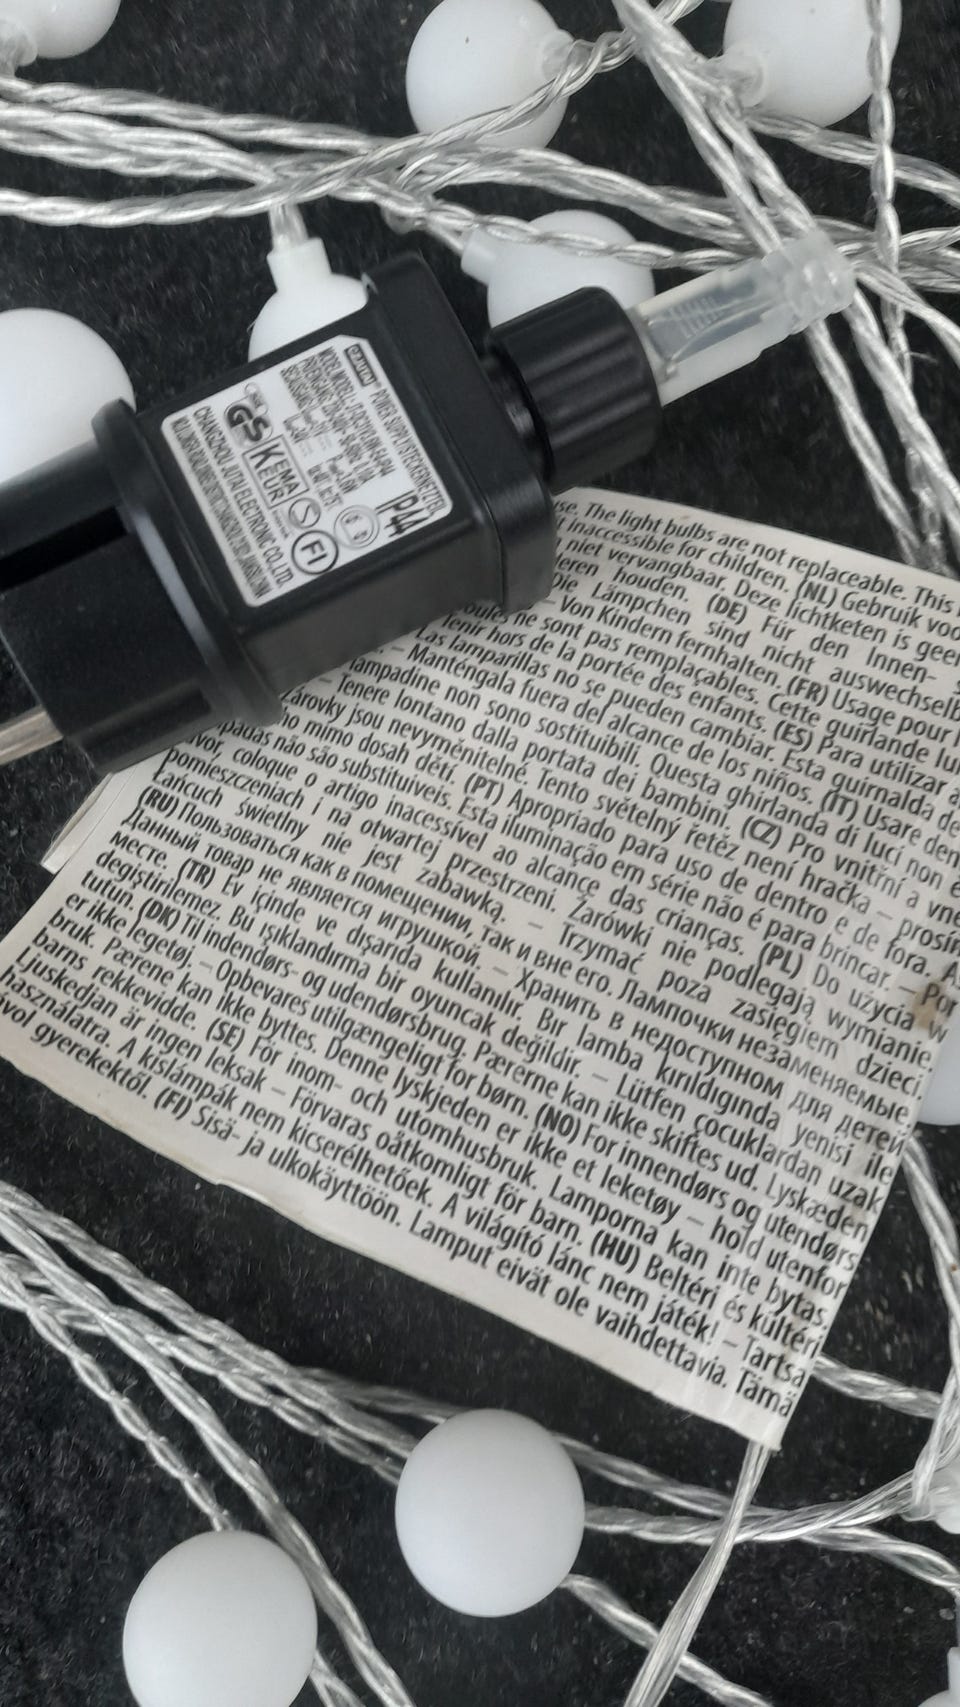 POWER SUPPLY/STECKERNETZTEIL
IP44
GS
KEMA
KEUR
S
FI
CHANGZHOU JUTAI ELECTRONIC CO.,LTD.
use. The light bulbs are not replaceable. This
inaccessible for children. (NL) Gebruik voo
niet vervangbaar. Deze lichtketen is geen
houden. (DE) Für den Innen-
Die Lämpchen sind nicht auswechselb
– Von Kindern fernhalten. (FR) Usage pour l
ne sont pas remplaçables. Cette guirlande lu
Tenir hors de la portée des enfants. (ES) Para utilizar
Las lamparillas no se pueden cambiar. Esta guirnalda de
– Manténgala fuera del alcance de los niños. (IT) Usare den
lampadine non sono sostituibili. Questa ghirlanda di luci non è
– Tenere lontano dalla portata dei bambini. (CZ) Pro vnitřní a vně
Žárovky jsou nevyměnitelné. Tento světelný řetěz není hračka – prosím
ho mimo dosah dětí. (PT) Apropriado para uso de dentro e de fora. As
não são substituíveis. Esta iluminação em série não é para brincar. – Por
coloque o artigo inacessível ao alcance das crianças. (PL) Do użycia w
pomieszczeniach i na otwartej przestrzeni. Żarówki nie podlegają wymianie.
Łańcuch świetlny nie jest zabawką. – Trzymać poza zasięgiem dzieci.
(RU) Пользоваться как в помещении, так и вне его. Лампочки незаменяемые.
Данный товар не является игрушкой. – Хранить в недоступном для детей
месте. (TR) Ev içinde ve dışarıda kullanılır. Bır lamba kırıldıgında yenisi ile
degiştirilemez. Bu ışıklandırma bir oyuncak değildir. – Lütfen çocuklardan uzak
tutun. (DK) Til indendørs- og udendørsbrug. Pærerne kan ikke skiftes ud. Lyskæden
er ikke legetøj. – Opbevares utilgængeligt for børn. (NO) For innendørs og utendørs
bruk. Pærene kan ikke byttes. Denne lyskjeden er ikke et leketøy – hold utenfor
barns rekkevidde. (SE) För inom- och utomhusbruk. Lamporna kan inte bytas.
Ljuskedjan är ingen leksak – Förvaras oåtkomligt för barn. (HU) Beltéri és kültéri
használatra. A kislámpák nem kicserélhetőek. A világító lánc nem játék! – Tartsa
távol gyerekektől. (FI) Sisä- ja ulkokäyttöön. Lamput eivät ole vaihdettavia. Tämä